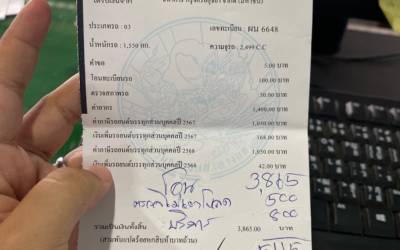 ประเภทรถ : 03 เลขทะเบียน : ผน 6648
น้ำหนักรถ : 1,550 กก. ความจุรถ : 2,499 C.C
คำขอ 5.00 บาท
โอนทะเบียนรถ 100.00 บาท
ตรวจสภาพรถ 50.00 บาท
ค่าอากร 1,400.00 บาท
ค่าภาษีรถยนต์บรรทุกส่วนบุคคลปี 2567 1,050.00 บาท
เงินเพิ่มรถยนต์บรรทุกส่วนบุคคลปี 2567 168.00 บาท
ค่าภาษีรถยนต์บรรทุกส่วนบุคคลปี 2568 1,050.00 บาท
เงินเพิ่มรถยนต์บรรทุกส่วนบุคคลปี 2568 42.00 บาท
โอน 3,865
500
บริการ 800
รวมเป็นเงินทั้งสิ้น 3,865.00 บาท
(สามพันแปดร้อยหกสิบห้าบาทถ้วน)